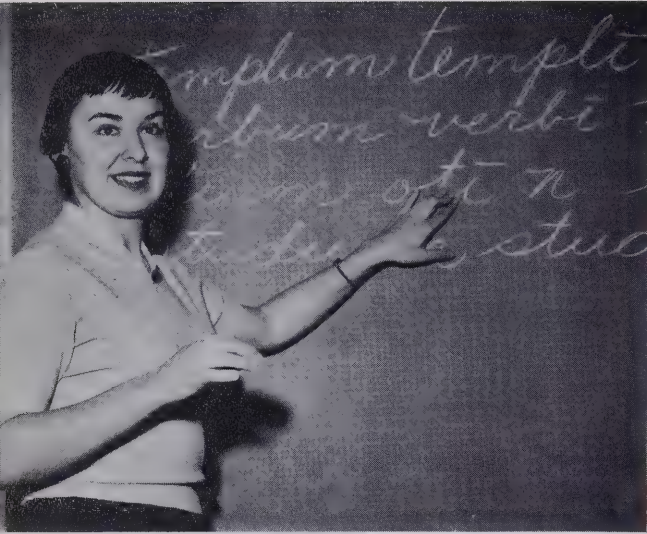 mplum templī
rbum verbī
m otī n
stud